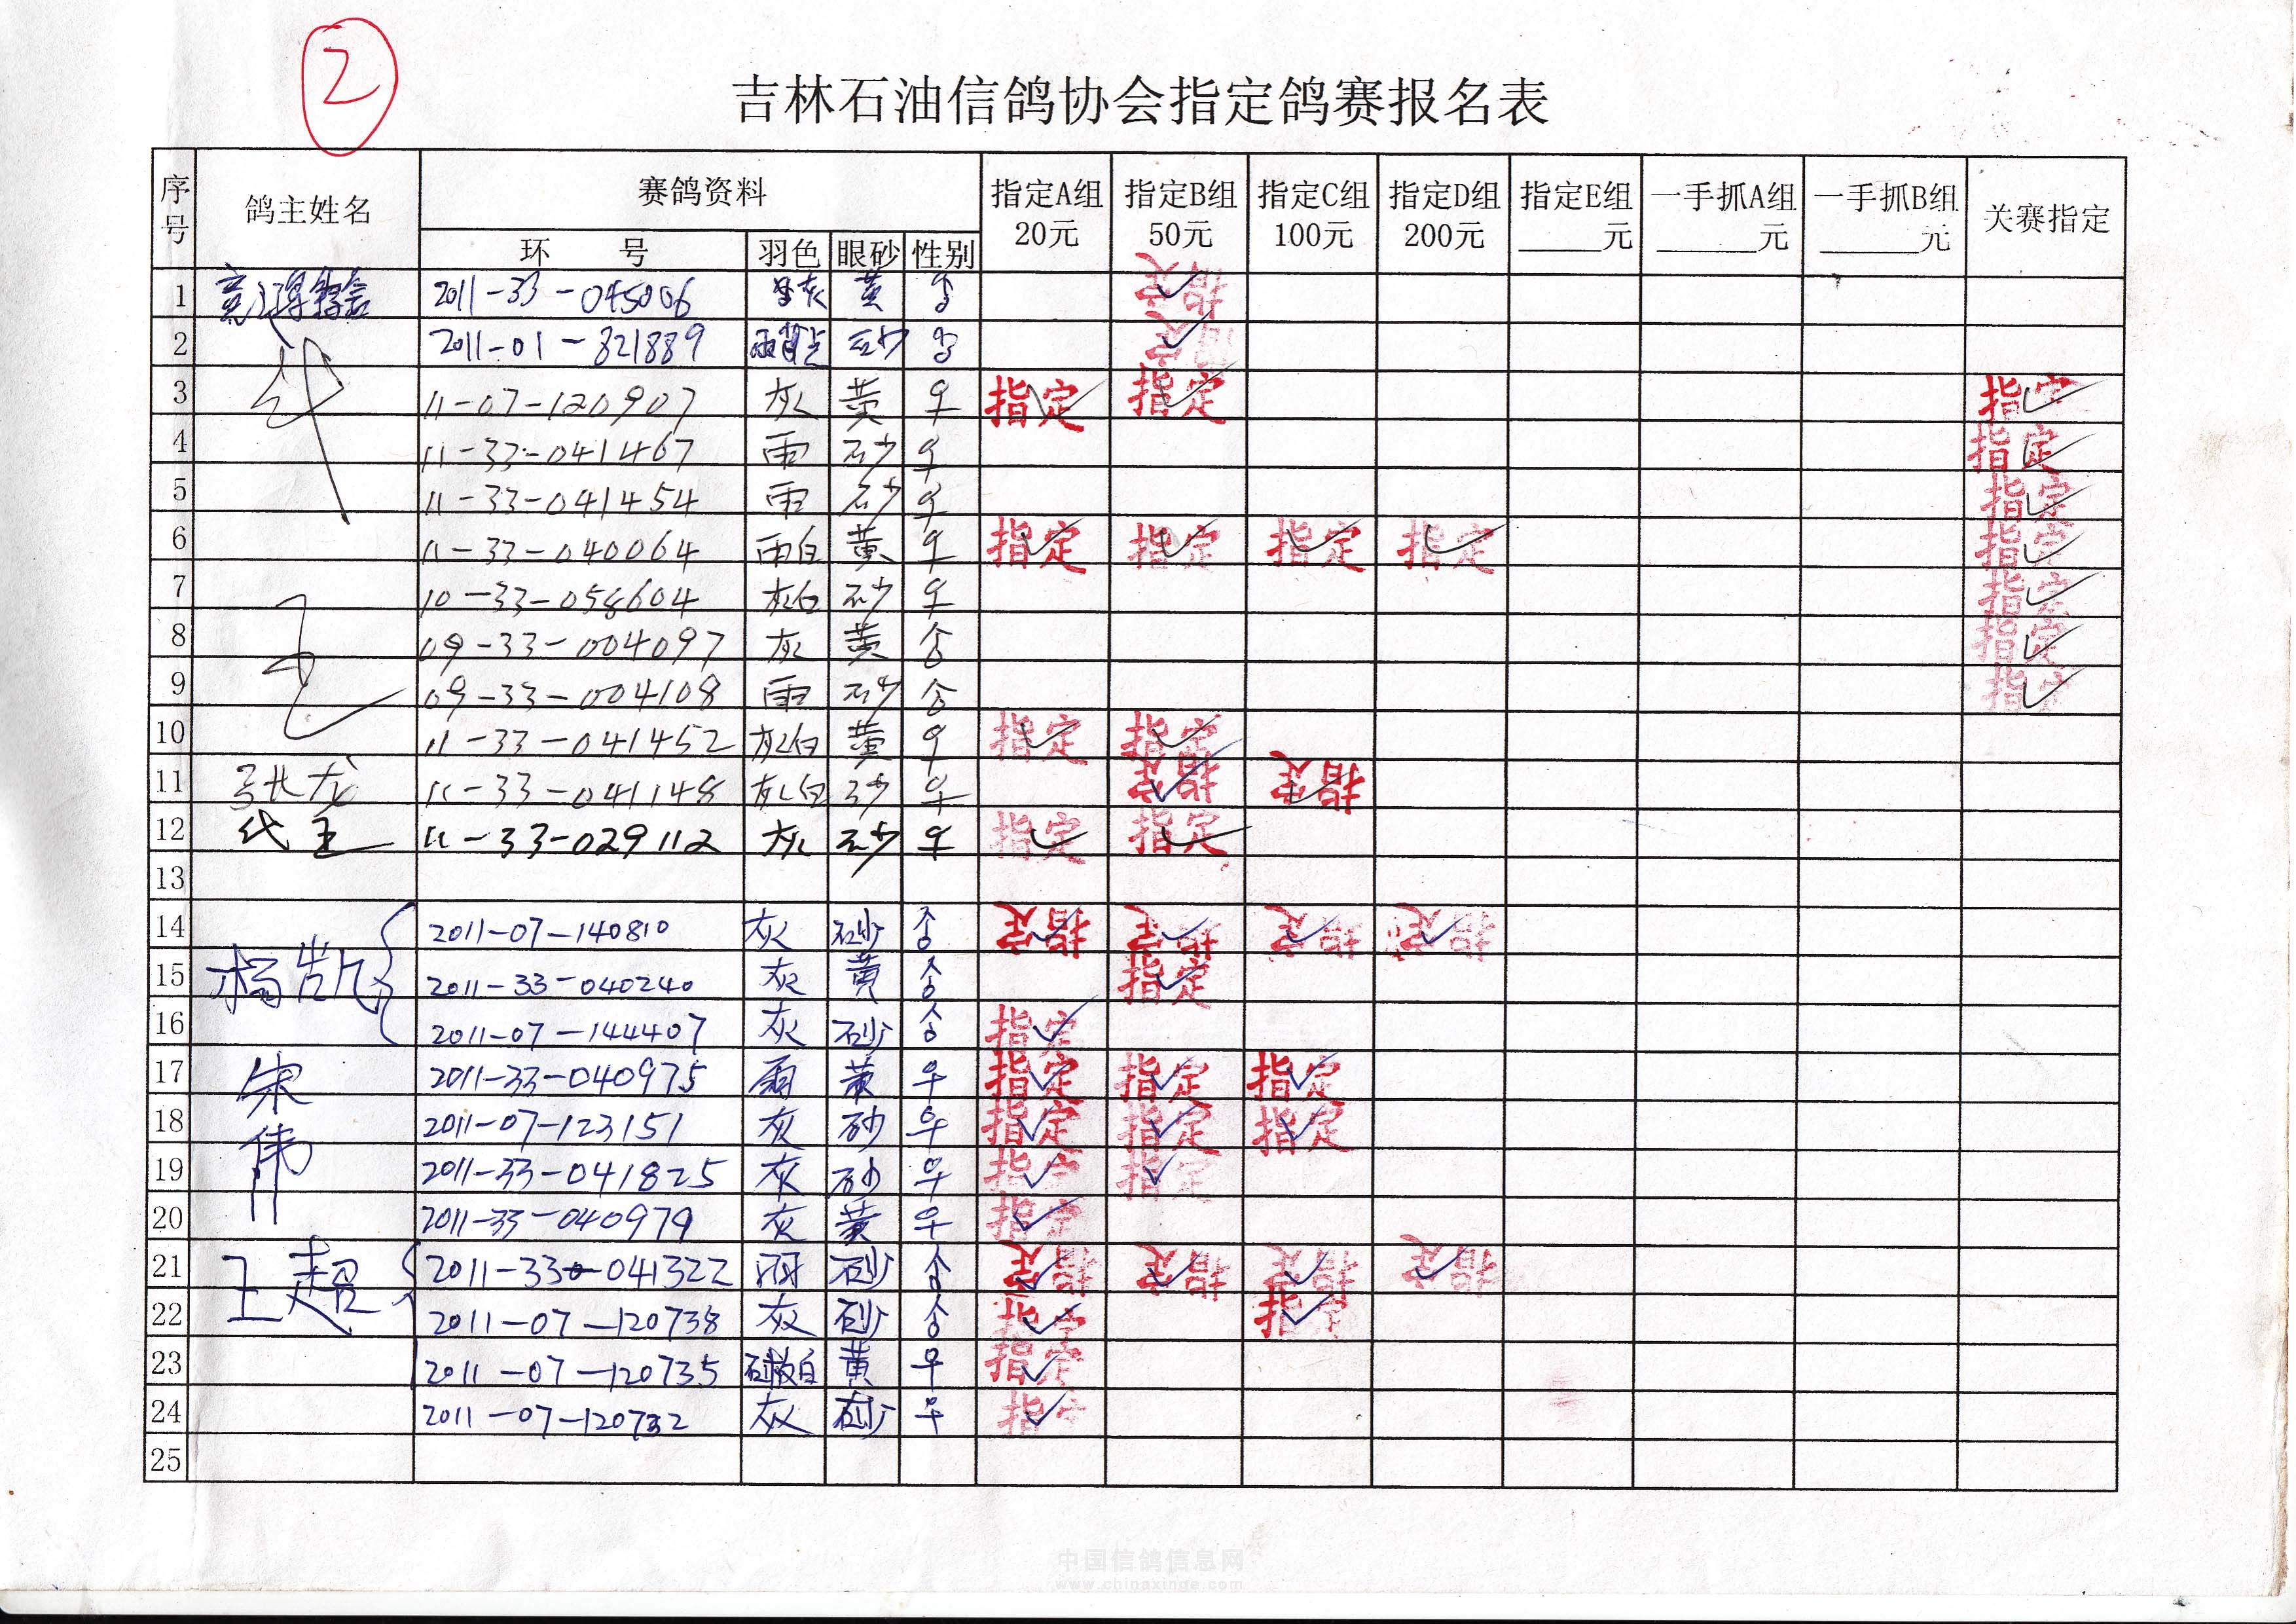 2
吉林石油信鸽协会指定鸽赛报名表
序号 鸽主姓名 赛鸽资料 指定A组 20元 指定B组 50元 指定C组 100元 指定D组 200元 指定E组 ______元 一手抓A组 ______元 一手抓B组 ______元 关赛指定
环 号 羽色 眼砂 性别
1 2011-33-045006 黄 指定
2 2011-01-821889 砂 指定
3 11-07-120907 灰 黄 ♀ 指定 指定 指定
4 11-33-041467 雨 砂 ♀ 指定
5 11-33-041454 雨 砂 ♀ 指定
6 11-33-040064 雨白 黄 ♀ 指定 指定 指定 指定 指定
7 10-33-058604 灰白 砂 ♀ 指定
8 09-33-004097 灰 黄 指定
9 09-33-004108 雨 砂 指定
10 11-33-041452 灰白 黄 ♀ 指定 指定
11 张龙 11-33-041148 灰白 砂 ♀ 指定 指定
12 代王 11-33-029112 灰 砂 ♀ 指定 指定
13
14 2011-07-140810 灰 砂 指定 指定 指定 指定
15 杨凯 2011-33-040240 灰 黄 指定
16 2011-07-144407 灰 砂 指定
17 宋 2011-33-040975 雨 黄 ♀ 指定 指定 指定
18 伟 2011-07-123151 灰 砂 ♀ 指定 指定 指定
19 2011-33-041825 灰 砂 ♀ 指定 指定
20 2011-33-040979 灰 黄 ♀ 指定
21 王超 2011-33-041322 雨 砂 指定 指定 指定 指定
22 2011-07-120738 灰 砂 指定 指定
23 2011-07-120735 黄 ♀ 指定
24 2011-07-120732 灰 砂 ♀ 指定
25
中国信鸽信息网
www.chinaxinge.com